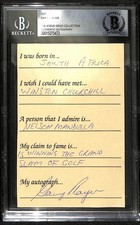 BECKETT
I was born in...
SOUTH AFRICA
I wish I could have met...
WINSTON CHURCHILL
A person that I admire is...
NELSON MANDELA
My claim to fame is...
IS WINNING THE GRAND
SLAM OF GOLF
My autograph...
Gary Player